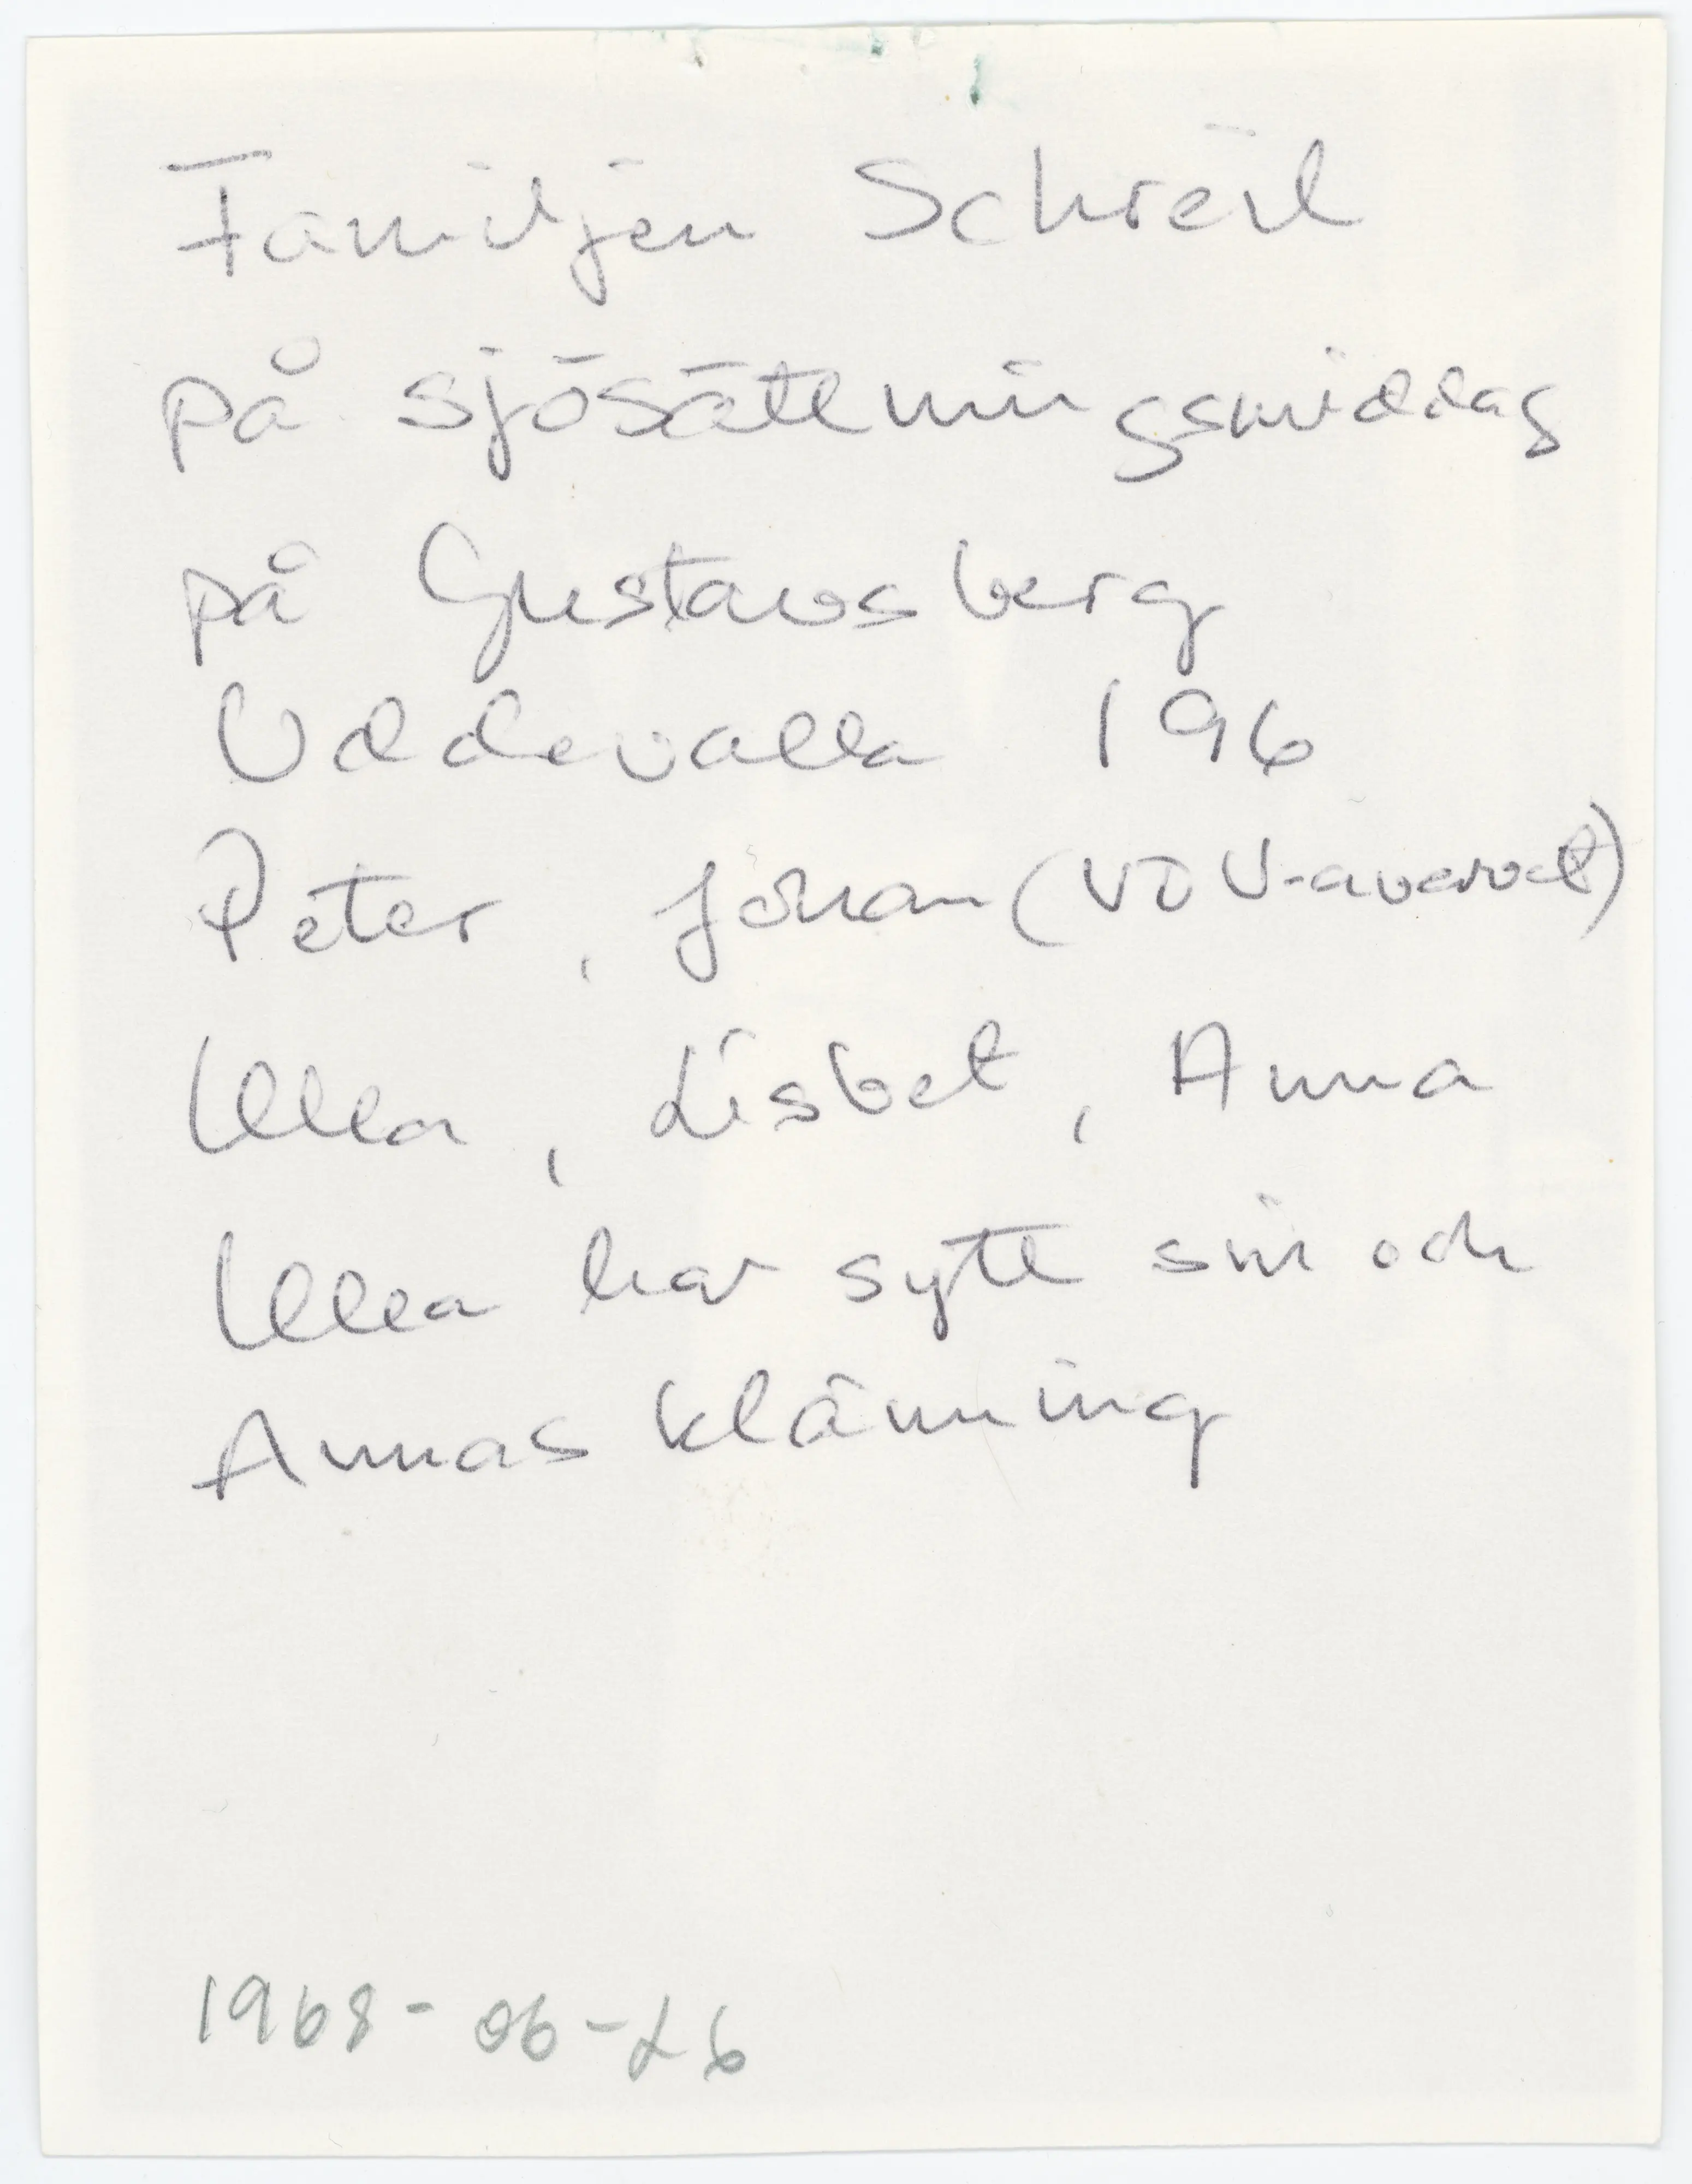 Familjen Schreil
på sjösättningsmiddag
på Gustavsberg
Uddevalla 196
Peter, Johan (
Ulla, Lisbet, Anna
Ulla har sytt sin och
Annas klänning
1968-06-26